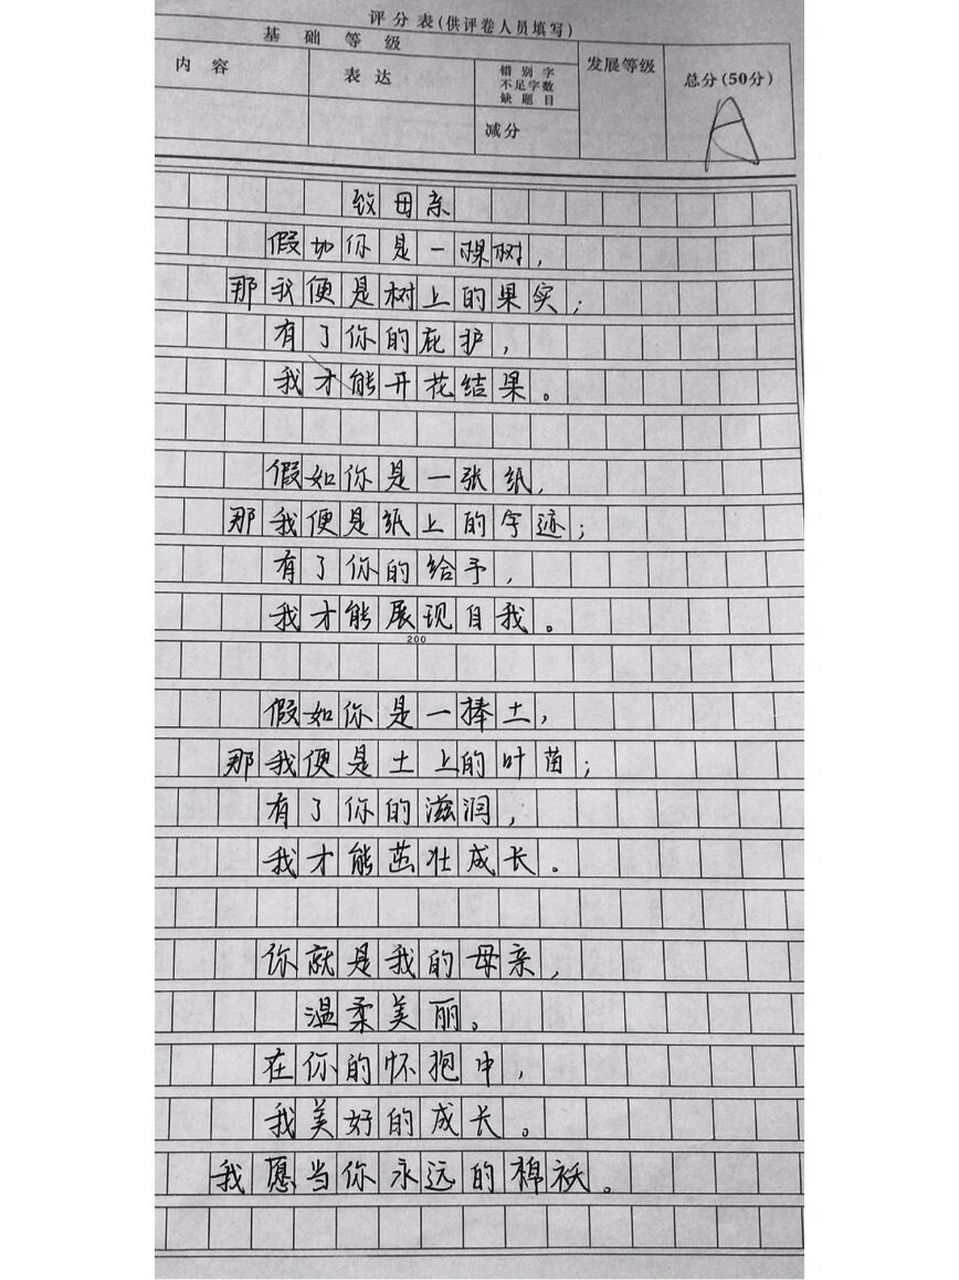 评分表(供评卷人员填写)
基础等级
发展等级
总分(50分)
内容
表达
错别字
不足字数
缺题目
减分
A
致母亲
假如你是一棵树，
那我便是树上的果实；
有了你的庇护，
我才能开花结果。
假如你是一张纸，
那我便是纸上的字迹；
有了你的给予，
我才能展现自我。
200
假如你是一捧土，
那我便是土上的叶苗；
有了你的滋润，
我才能茁壮成长。
你就是我的母亲，
温柔美丽。
在你的怀抱中，
我美好的成长。
我愿当你永远的棉袄。